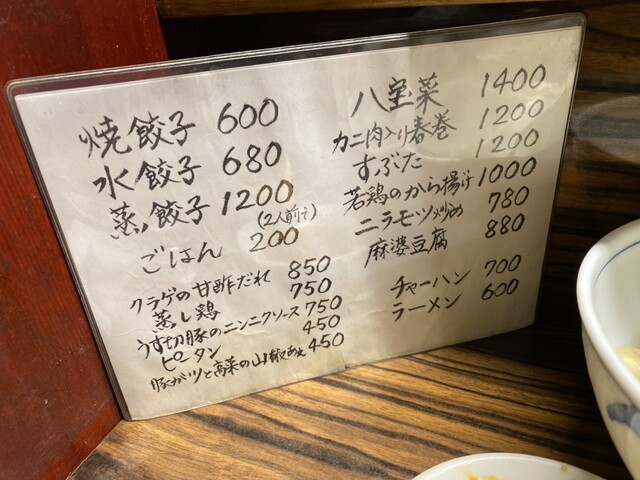 焼餃子 600
水餃子 680
蒸餃子 1200
(2人前で)
ごはん 200
クラゲの甘酢だれ 850
蒸し鶏 750
うす切豚のニンニクソース 750
ピータン 450
豚ガツと高菜の山椒あえ 450
八宝菜 1400
カニ肉入り春巻 1200
すぶた 1200
若鶏のから揚げ 1000
ニラモツ炒め 780
麻婆豆腐 880
チャーハン 700
ラーメン 600